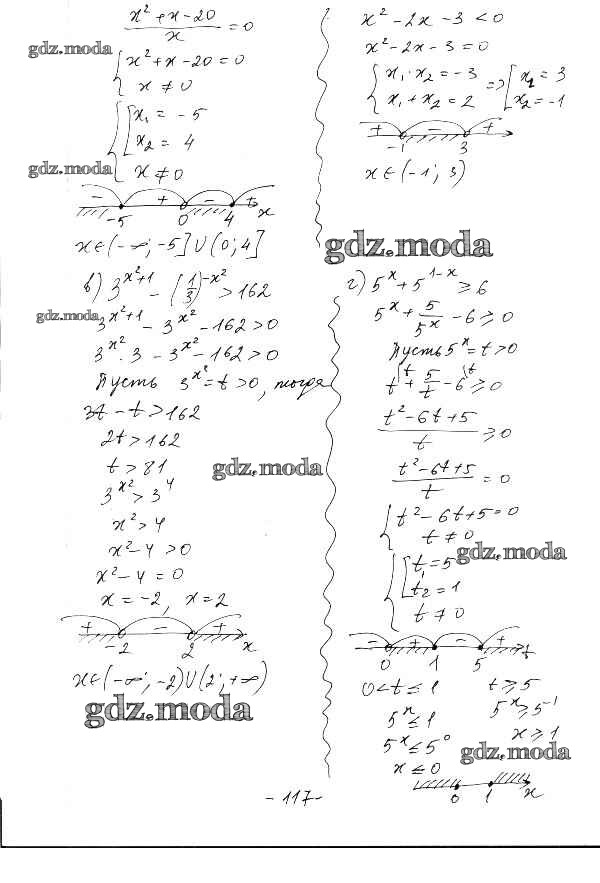 x² + x - 20 / x = 0
gdz.moda
{ x² + x - 20 = 0
x ≠ 0
{ [ x₁ = -5
x₂ = 4
gdz.moda
x ≠ 0
- + - +
-5 0 4 x
x ∈ (-∞; -5] ∪ (0; 4]
в) 3^(x²+1) - (1/3)^(-x²) > 162
gdz.moda
3^(x²+1) - 3^(x²) - 162 > 0
3^(x²) · 3 - 3^(x²) - 162 > 0
Пусть 3^(x²) = t > 0, тогда
3t - t > 162
2t > 162
t > 81
gdz.moda
3^(x²) > 3⁴
x² > 4
x² - 4 > 0
x² - 4 = 0
x = -2, x = 2
+ - +
-2 2 x
x ∈ (-∞; -2) ∪ (2; +∞)
gdz.moda
x² - 2x - 3 < 0
x² - 2x - 3 = 0
{ x₁ · x₂ = -3
x₁ + x₂ = 2 => [ x₁ = 3
x₂ = -1
+ - +
-1 3
x ∈ (-1; 3)
gdz.moda
г) 5^x + 5^(1-x) ≥ 6
5^x + 5/5^x - 6 ≥ 0
Пусть 5^x = t > 0
t + 5/t - 6 ≥ 0
t² - 6t + 5 / t ≥ 0
t² - 6t + 5 / t = 0
{ t² - 6t + 5 = 0
t ≠ 0
gdz.moda
{ [ t₁ = 5
t₂ = 1
t ≠ 0
- + - +
0 1 5 t
0 < t ≤ 1 t ≥ 5
5^x ≤ 1 5^x ≥ 5¹
5^x ≤ 5⁰ x ≥ 1
gdz.moda
x ≤ 0
0 1 x
- 117 -